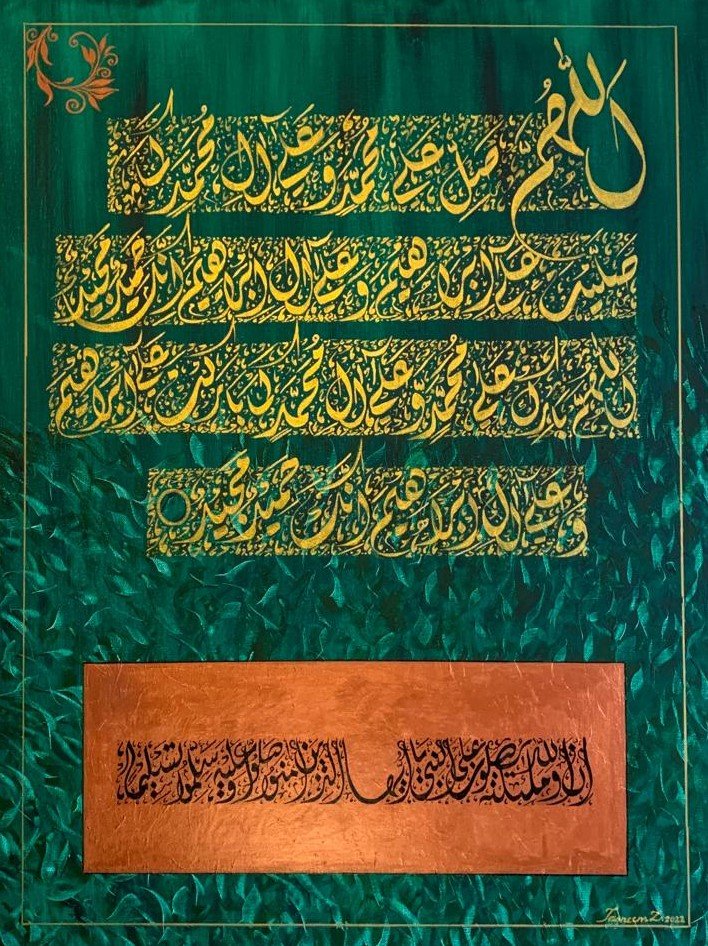 اللهم صل على محمد وعلى آل محمد كما
صليت على ابراهيم وعلى آل ابراهيم انك حميد مجيد
اللهم بارك على محمد وعلى آل محمد كما باركت على ابراهيم
وعلى آل ابراهيم انك حميد مجيد
ان الله وملئكته يصلون على النبي يايها الذين امنوا صلوا عليه وسلموا تسليما
Tasneem 2022